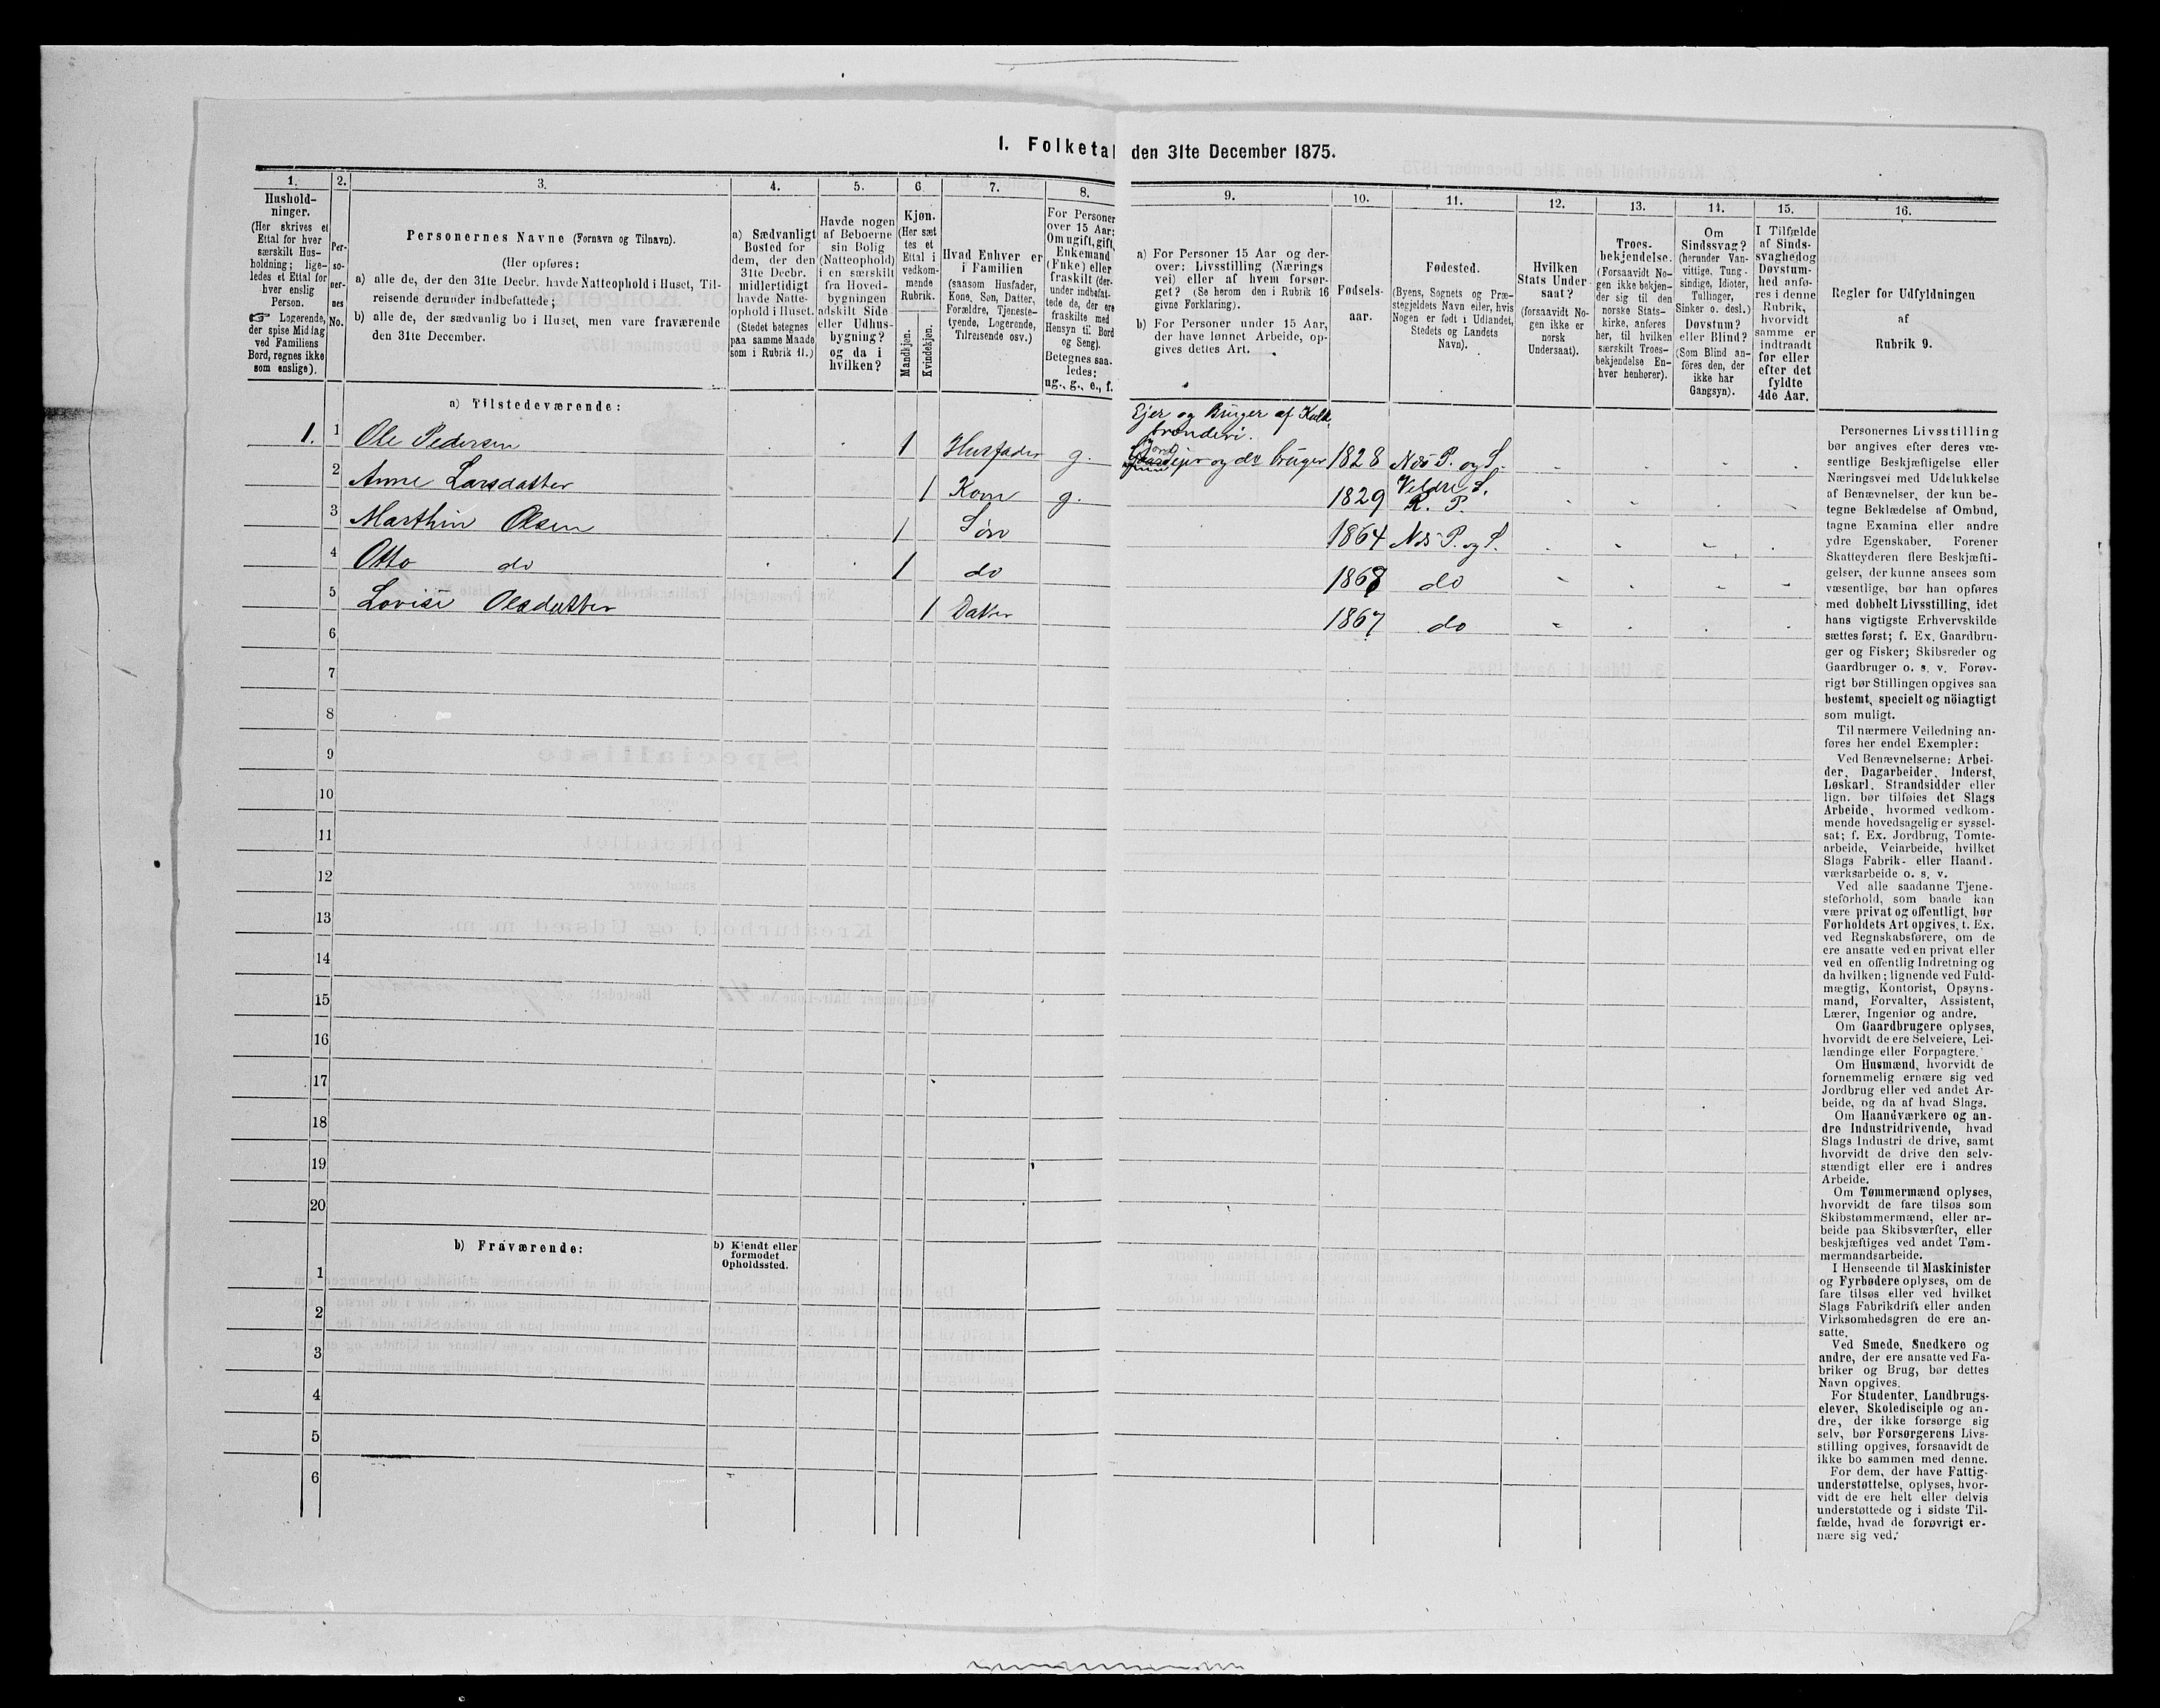 I. Folketal den 31te December 1875.
1.
Hushold-
ninger.
(Her skrives et
Ettal for hver
særskilt Hus-
holdning; lige-
ledes et Ettal for
hver enslig
Person.
☞ Logerende,
der spise Middag
ved Familiens
Bord, regnes ikke
som enslige).
2.
Per-
so-
ner-
nes
No.
3.
Personernes Navne (Fornavn og Tilnavn).
(Her opføres:
a) alle de, der den 31te Decbr. havde Natteophold i Huset, Til-
reisende derunder indbefattede;
b) alle de, der sædvanlig bo i Huset, men vare fraværende
den 31te December.
4.
a) Sædvanligt
Bosted for
dem, der den
31te Decbr.
midlertidigt
havde Natte-
ophold i Huset.
(Stedet betegnes
paa samme Maade
som i Rubrik 11.)
5.
Havde nogen
af Beboerne
sin Bolig
(Natteophold)
i en særskilt
fra Hoved-
bygningen
adskilt Side-
eller Udhus-
bygning?
og da i
hvilken?
6.
Kjøn.
(Her sæt
tes et
Ettal i
vedkom-
mende
Rubrik.
Mandkjøn.
Kvindekjøn.
7.
Hvad Enhver er
i Familien
(saasom Husfader,
Kone, Søn, Datter,
Forældre, Tjeneste-
tyende, Logerende,
Tilreisende osv.)
8.
For Personer
over 15 Aar:
Om ugift, gift,
Enkemand
(Enke) eller
fraskilt (der-
under indbefat-
tede de, der ere
fraskilte med
Hensyn til Bord
og Seng).
Betegnes saa-
ledes:
ug., g., e., f.
9.
a) For Personer 15 Aar og der-
over: Livsstilling (Nærings
vei) eller af hvem forsør-
get? (Se herom den i Rubrik 16
givne Forklaring).
b) For Personer under 15 Aar,
der have lønnet Arbeide, op-
gives dettes Art.
10.
Fødsels-
aar.
11.
Fødested.
(Byens, Sognets og Præ-
stegjeldets Navn eller, hvis
Nogen er født i Udlandet,
Stedets og Landets
Navn).
12.
Hvilken
Stats Under-
saat?
(forsaavidt No-
gen ikke er
norsk
Undersaat).
13.
Troes-
bekjendelse.
(Forsaavidt No-
gen ikke bekjen-
der sig til den
norske Stats-
kirke, anføres
her, til hvilken
særskilt Troes-
bekjendelse En-
hver henhører).
14.
Om
Sindssvag?
(herunder Van-
vittige, Tung-
sindige, Idioter,
Tullinger,
Sinker o. desl.)
Døvstum?
eller Blind?
(Som Blind an-
føres den, der
ikke har
Gangsyn).
15.
I Tilfælde
af Sinds-
svaghed og
Døvstum-
hed anfø-
res i denne
Rubrik,
hvorvidt
samme er
indtraadt
før eller
efter det
fyldte
4de Aar.
16.
Regler for Udfyldningen
af
Rubrik 9.
a) Tilstedeværende:
Ejer og Bruger af Kalk-
brænderi.
Jord
1. 1 Ole Pedersen 1 Husfader g. ejer og do bruger 1828 Næs P. og S.
Veldre S.
2 Anne Larsdatter 1 Kone g. 1829 R. P.
3 Marthin Olsen 1 Søn 1864 Næs P. og S.
4 Otto do 1 do 1868 do
5 Lovise Olsdatter 1 Datter 1867 do
6
7
8
9
10
11
12
13
14
15
16
17
18
19
20
b) Fraværende:
b) Kjendt eller
formodet
Opholdssted.
1
2
3
4
5
6
Personernes Livsstilling
bør angives efter deres væ-
sentlige Beskjæftigelse eller
Næringsvei med Udelukkelse
af Benævnelser, der kun be-
tegne Beklædelse af Ombud,
tagne Examina eller andre
ydre Egenskaber. Forener
Skatteyderen flere Beskjæfti-
gelser, der kunne ansees som
væsentlige, bør han opføres
med dobbelt Livsstilling, idet
hans vigtigste Erhvervskilde
sættes først; f. Ex. Gaardbru-
ger og Fisker; Skibsreder og
Gaardbruger o. s. v. Forøv-
rigt bør Stillingen opgives saa
bestemt, specielt og nöiagtigt
som muligt.
Til nærmere Veiledning an-
føres her endel Exempler:
Ved Benævnelserne: Arbei-
der, Dagarbeider, Inderst,
Løskarl, Strandsidder eller
lign. bør tilføies det Slags
Arbeide, hvormed vedkom-
mende hovedsagelig er syssel-
sat; f. Ex. Jordbrug, Tomte-
arbeide, Veiarbeide, hvilket
Slags Fabrik- eller Haand-
værksarbeide o. s. v.
Ved alle saadanne Tjene-
steforhold, som baade kan
være privat og offentligt, bør
Forholdets Art opgives, t. Ex.
ved Regnskabsførere, om de
ere ansatte ved en privat eller
ved en offentlig Indretning og
da hvilken; lignende ved Fuld-
mægtig, Kontorist, Opsyns-
mand, Forvalter, Assistent,
Lærer, Ingeniør og andre.
Om Gaardbrugere oplyses,
hvorvidt de ere Selveiere, Lei-
lændinge eller Forpagtere.
Om Husmænd, hvorvidt de
fornemmelig ernære sig ved
Jordbrug eller ved andet Ar-
beide, og da af hvad Slags.
Om Haandværkere og an-
dre Industridrivende, hvad
Slags Industri de drive, samt
hvorvidt de drive den selv-
stændigt eller ere i andres
Arbeide.
Om Tømmermænd oplyses,
hvorvidt de fare tilsøs som
Skibstømmermænd, eller ar-
beide paa Skibsværfter, eller
beskjæftiges ved andet Tøm-
mermandsarbeide.
I Henseende til Maskinister
og Fyrbødere oplyses, om de
fare tilsøs eller ved hvilket
Slags Fabrikdrift eller anden
Virksomhedsgren de ere an-
satte.
Ved Smede, Snedkere og
andre, der ere ansatte ved Fa-
briker og Brug, bør dettes
Navn opgives.
For Studenter, Landbrugs-
elever, Skoledisciple og an-
dre, der ikke forsørge sig
selv, bør Forsørgerens Livs-
stilling opgives, forsaavidt de
ikke bo sammen med denne.
For dem, der have Fattig-
understøttelse, oplyses, hvor-
vidt de ere helt eller delvis
understøttede og i sidste Til-
fælde, hvad de forøvrigt er-
nære sig ved.